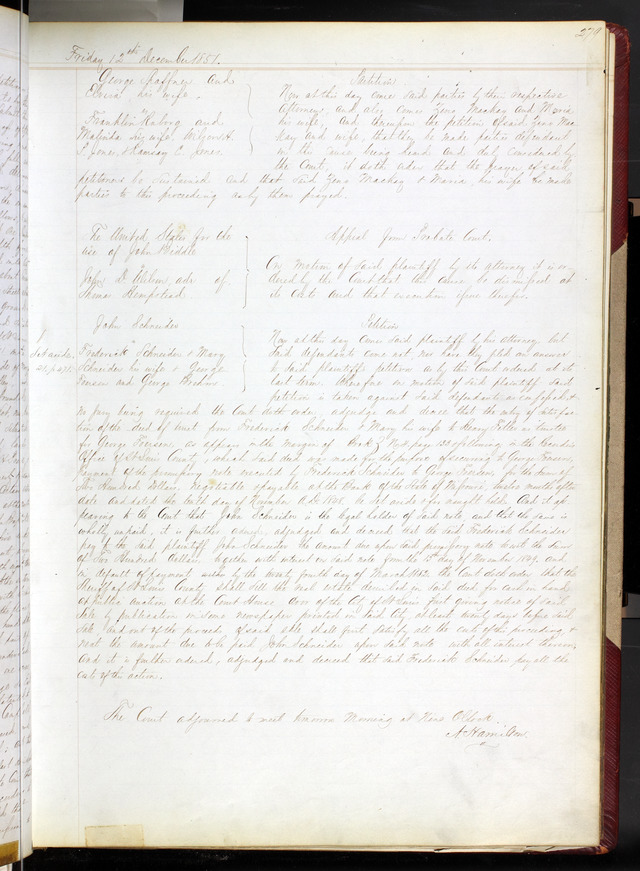 279
Friday 12th December 1851.
George Gaffney and
his wife
vs
Franklin and
Malinda his wife, Wilson A.
Jones, & Ramsay C. Jones
Petition
Now at this day come said parties by their respective
attorneys, and also comes Zeno Mackay and Maria
his wife, and thereupon the petition of said Zeno Mac-
kay and wife, that they be made parties defendant
in the cause being heard and duly considered by
the Court, it doth order that the prayer of said
petitioners be sustained and that said Zeno Mackay & Maria, his wife be made
parties to this proceeding as by them prayed.
The United States for the
use of John Biddle
vs
John D. Wilson, adr of
Hempstead
Appeal from Probate Court.
On motion of said plaintiff by its attorney it is or-
dered by the Court that this cause be dismissed at
its costs and that execution issue therefor.
John Schneider
vs
Frederick Schneider & Mary
Schneider his wife & George
and George
Petition
Now at this day comes said plaintiff by his attorney but
said defendants come not, nor have they filed an answer
to said plaintiff's petition as by this Court ordered at its
last term. Therefore on motion of said plaintiff said
petition is taken against said defendants as confessed &
no jury being required the Court doth order, adjudge and decree that the entry of satisfac-
tion of the deed of trust from Frederick Schneider & Mary his wife to Henry as trustee
for George as appears in the margin of Book following in the Recorders
Office of St Louis County, which said deed was made for the purpose of securing to George
payment of the promissory note executed by Frederick Schneider to George for the sum of
Two Hundred dollars negotiable & payable at the Bank of the State of Missouri, twelve months after
date and dated the day of November A.D. 184, be set aside for naught held. And it ap-
pearing to the Court that John Schneider is the legal holder of said note and that the same is
wholly unpaid, it is further ordered, adjudged and decreed that the said Frederick Schneider
pay to the said plaintiff John Schneider the amount due upon said promissory note to wit the sum
of Two Hundred dollars together with interest on said note from the 15th day of November 1849. and
in default of payment by the twenty fourth day of March 1852. the Court doth order that the
Sheriff of St Louis County shall sell the real estate described in said deed, for cash in hand,
at public auction at the Court House door of the City of St Louis first giving notice of said
sale by publication in some newspaper printed in said City at least twenty days before said
sale and out of the proceeds of said sale shall first satisfy all the costs of this proceeding &
next the amount due to the said John Schneider upon said note with all interest thereon,
And it is further ordered, adjudged and decreed that said Frederick Schneider pay all the
costs of this action.
The Court adjourned to meet tomorrow Morning at Nine O'Clock.
A. Hamilton